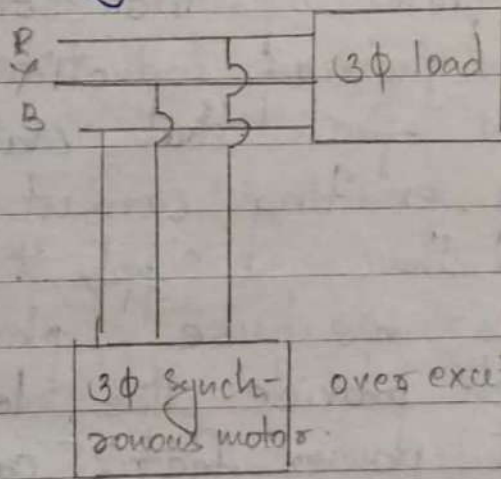 R
Y
B
3φ load
3φ Synch-
ronous motor.
over exci